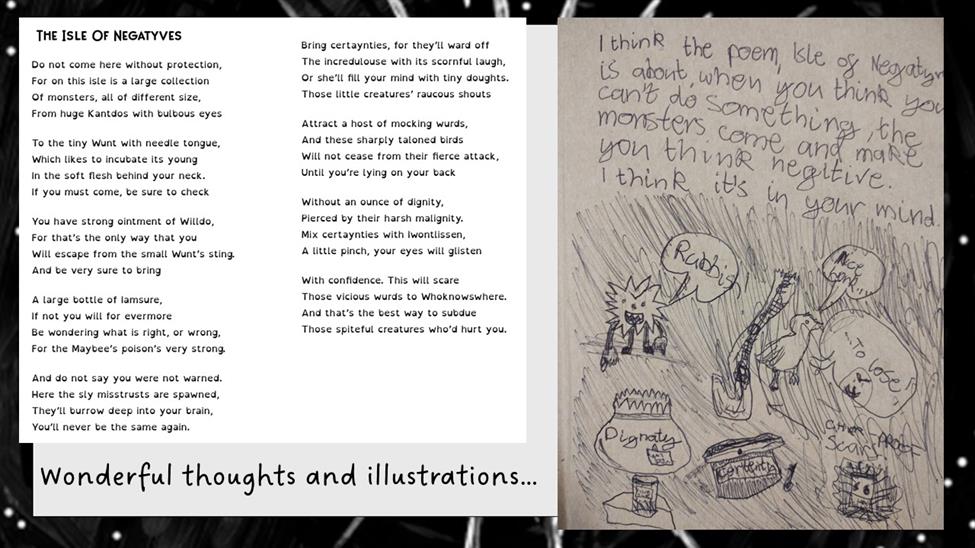 THE ISLE OF NEGATYVES
Do not come here without protection,
For on this isle is a large collection
Of monsters, all of different size,
From huge Kantdos with bulbous eyes
To the tiny Wunt with needle tongue,
Which likes to incubate its young
In the soft flesh behind your neck.
If you must come, be sure to check
You have strong ointment of Willdo,
For that's the only way that you
Will escape from the small Wunt's sting.
And be very sure to bring
A large bottle of Iamsure,
If not you will for evermore
Be wondering what is right, or wrong,
For the Maybee's poison's very strong.
And do not say you were not warned.
Here the sly misstrusts are spawned,
They'll burrow deep into your brain,
You'll never be the same again.
Bring certaynties, for they'll ward off
The incredulouse with its scornful laugh,
Or she'll fill your mind with tiny doughts.
Those little creatures' raucous shouts
Attract a host of mocking wurds,
And these sharply taloned birds
Will not cease from their fierce attack,
Until you're lying on your back
Without an ounce of dignity,
Pierced by their harsh malignity.
Mix certaynties with Iwontlissen,
A little pinch, your eyes will glisten
With confidence. This will scare
Those vicious wurds to Whoknowswhere.
And that's the best way to subdue
Those spiteful creatures who'd hurt you.
Wonderful thoughts and illustrations...
I think the poem, Isle of Negatyv
is about, when you think you
can't do something, the
monsters come and make
you think negitive.
I think it's in your mind.
Rubbis
Nice
To lose
Dignaty
Scar